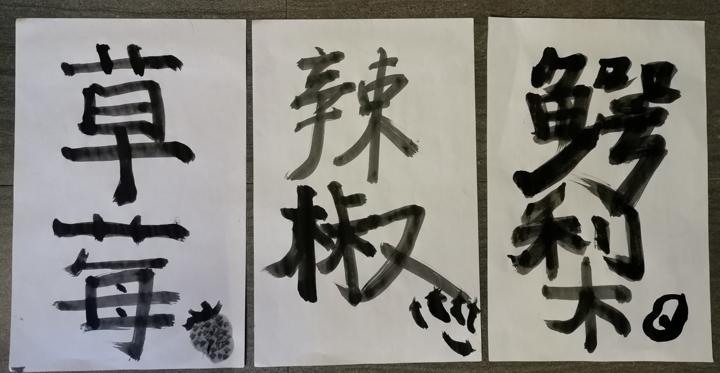 草莓
辣椒
鳄梨